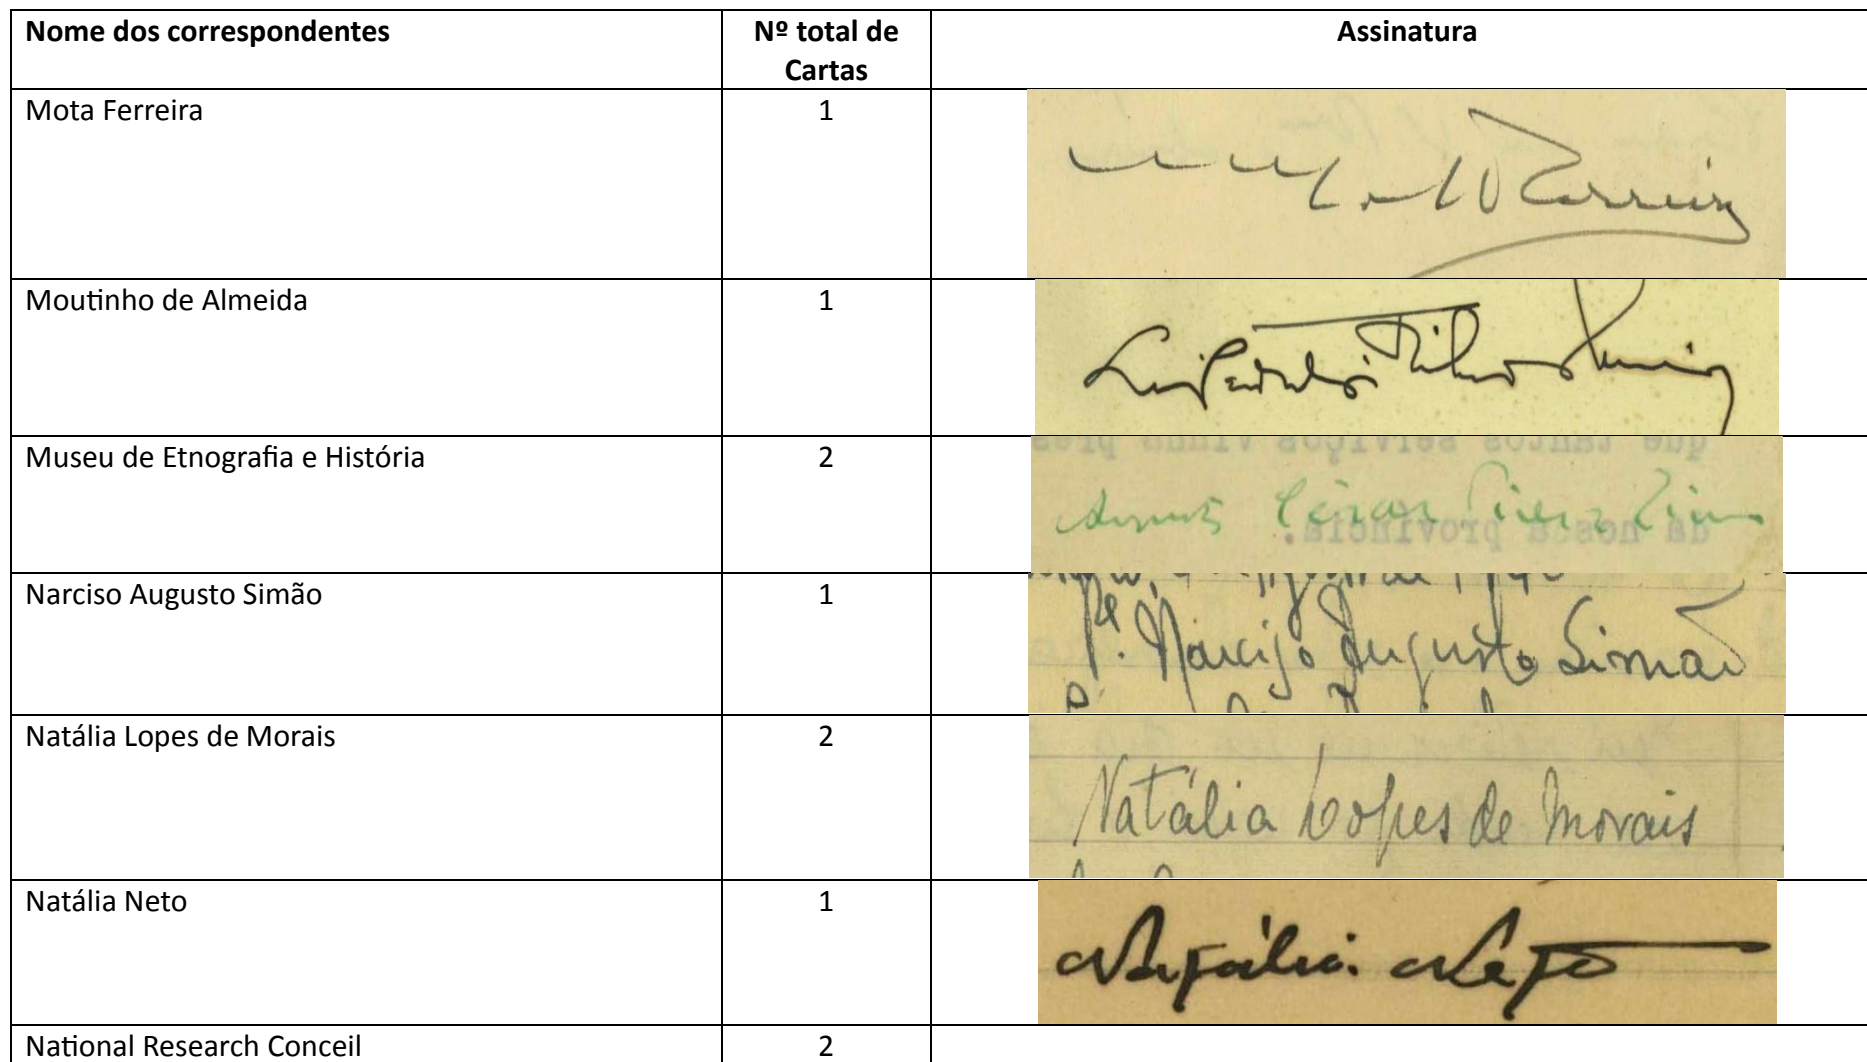 Nome dos correspondentes
Nº total de
Cartas
Assinatura
Mota Ferreira
1
Ferreira
Moutinho de Almeida
1
Museu de Etnografia e História
2
que tantos serviços vinha pres
da nossa provincia.
Narciso Augusto Simão
1
Pe. Narciso Augusto Simão
Natália Lopes de Morais
2
Natália Lopes de Morais
Natália Neto
1
Natália Neto
National Research Conceil
2